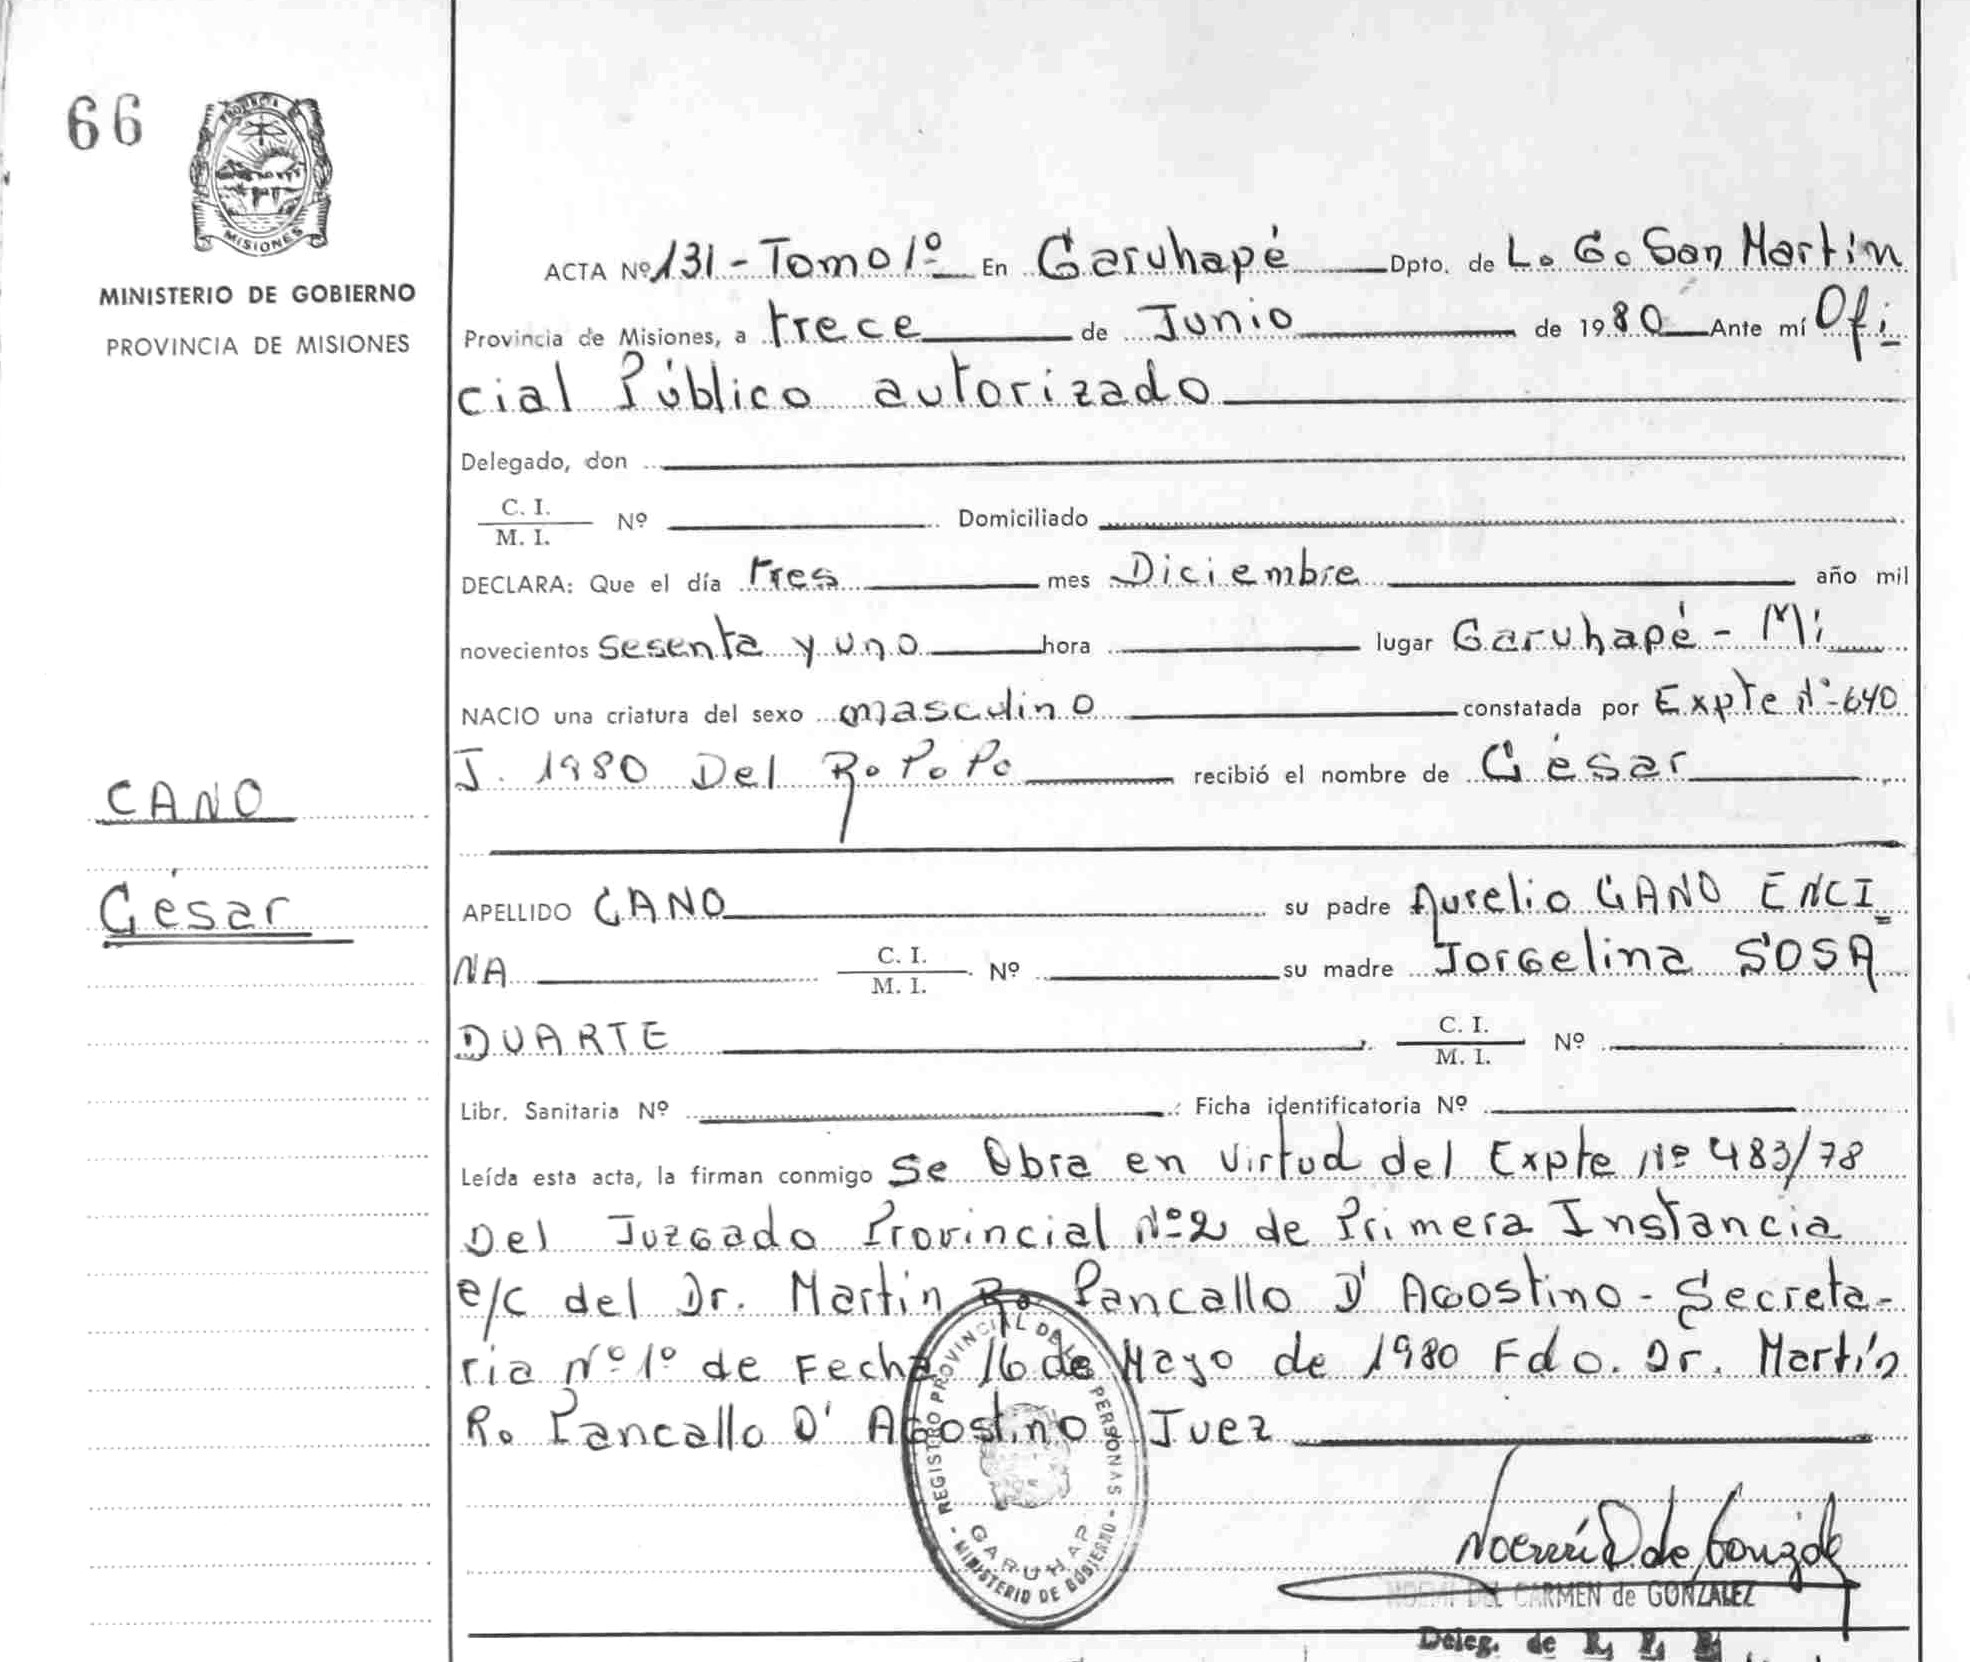 66
PROVINCIA
MISIONES
MINISTERIO DE GOBIERNO
PROVINCIA DE MISIONES
CANO
César
ACTA Nº 131 - Tomo 1º En Garuhapé Dpto. de L. G. San Martin
Provincia de Misiones, a trece de Junio de 1980 Ante mí Ofi
cial Público autorizado
Delegado, don
C. I.
M. I. Nº Domiciliado
DECLARA: Que el día tres mes Diciembre año mil
novecientos sesenta y uno hora lugar Garuhapé - Mi
NACIO una criatura del sexo masculino constatada por Expte Nº 640
J. 1980 Del R. P. P. recibió el nombre de César
APELLIDO CANO su padre Aurelio CANO ENCI
NA C. I. M. I. Nº su madre Jorgelina SOSA
DUARTE C. I. M. I. Nº
Libr. Sanitaria Nº Ficha identificatoria Nº
Leída esta acta, la firman conmigo Se Obra en virtud del Expte Nº 483/78
Del Juzgado Provincial Nº 2 de Primera Instancia
e/c del Dr. Martin R. Pancallo D' Agostino - Secreta-
ria Nº 1º de Fecha 16 de Mayo de 1980 Fdo. Dr. Martín
R. Pancallo D' Agostino Juez
REGISTRO PROVINCIAL DE LAS PERSONAS - MINISTERIO DE GOBIERNO -
GARUHAP
Noemí D de Gonzál
NOEMI DEL CARMEN de GONZALEZ
Deleg. de R. P.